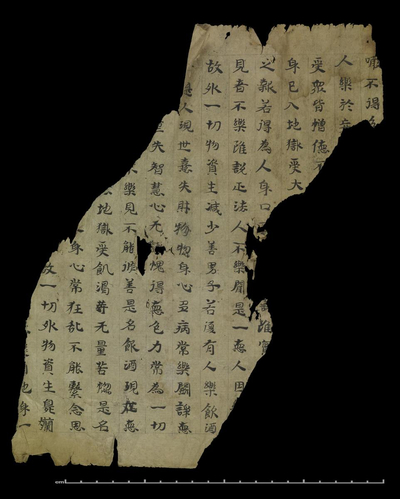 不得
人樂於
受眾皆憎惡
身已入地獄受大
之報若得為人身口雖實
見者不樂雖說正法人不樂聞是一惡人因
故外一切物資生減少善男子若復有人樂飲酒
人現世喜失財物物惣身心多病常樂鬪諍惡
失智慧心无愧得惡色力常為一切
樂見不能脩善是名飲酒現在惡
地獄受飢渴等无量苦惱是名
身心常狂乱不能繫念思
故一切外物資生臰爛
一